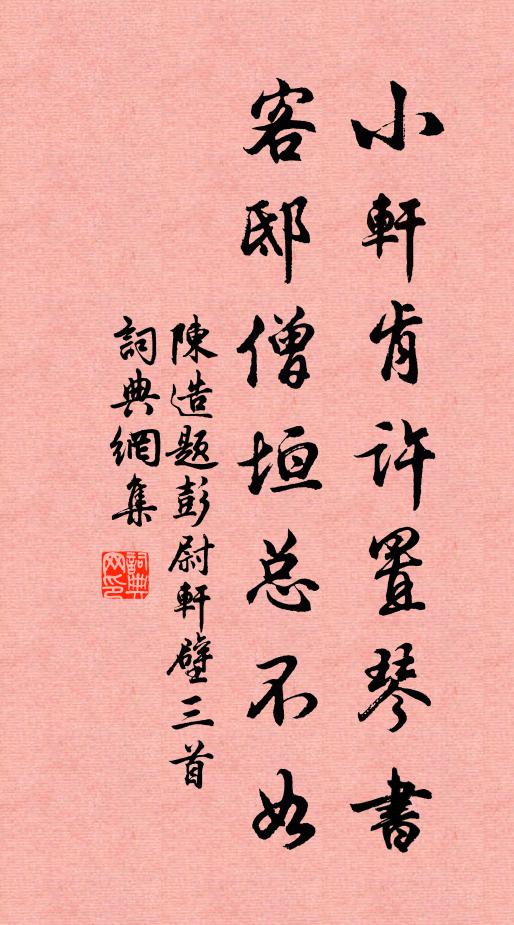 小軒肯許置琴書
客邸僧垣总不如
陳造題彭尉軒壁三首
詞典網集
詞典网印